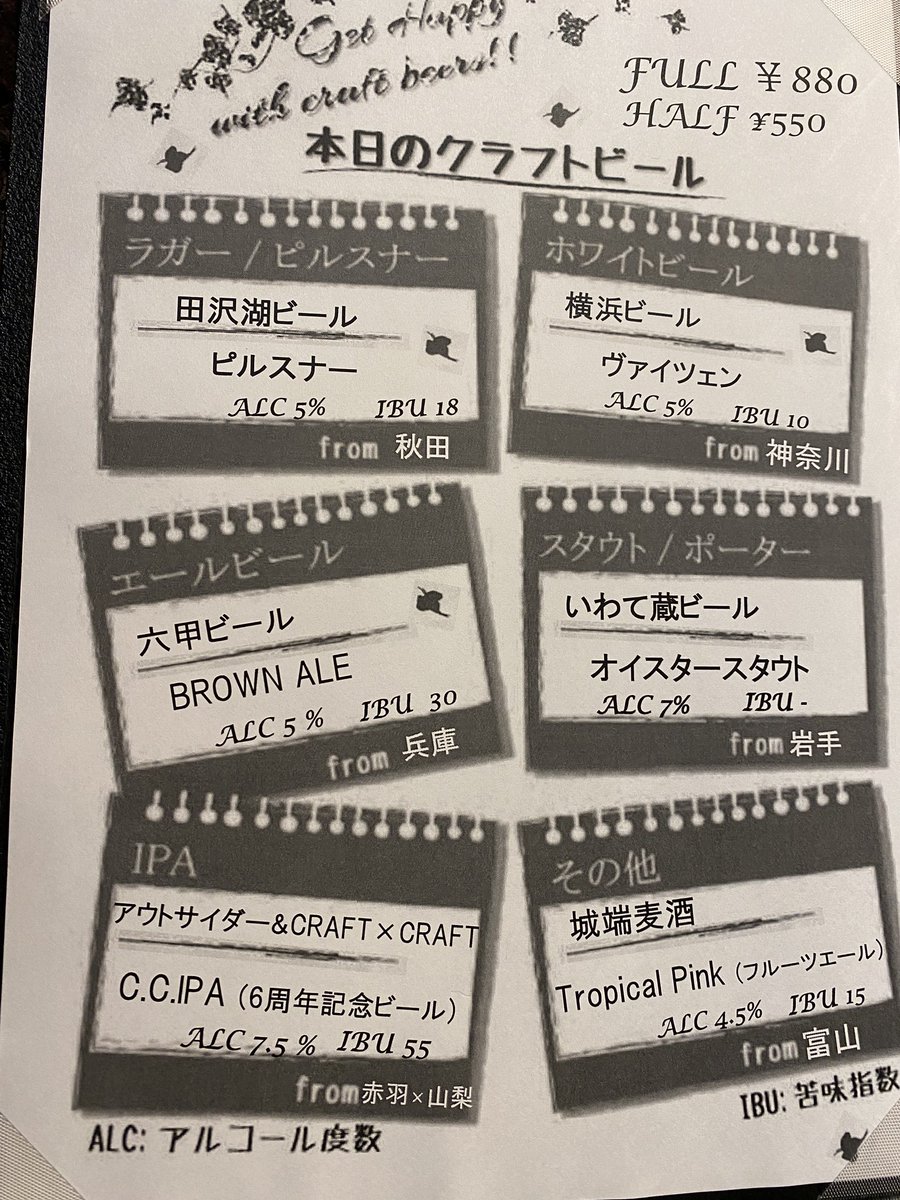 Get Happy
with craft beers!!
FULL ¥880
HALF ¥550
本日のクラフトビール
ラガー / ピルスナー
田沢湖ビール
ピルスナー
ALC 5% IBU 18
from 秋田
ホワイトビール
横浜ビール
ヴァイツェン
ALC 5% IBU 10
from 神奈川
エールビール
六甲ビール
BROWN ALE
ALC 5 % IBU 30
from 兵庫
スタウト / ポーター
いわて蔵ビール
オイスタースタウト
ALC 7% IBU -
from 岩手
IPA
アウトサイダー&CRAFT×CRAFT
C.C.IPA（6周年記念ビール）
ALC 7.5 % IBU 55
from 赤羽×山梨
その他
城端麦酒
Tropical Pink（フルーツエール）
ALC 4.5% IBU 15
from 富山
ALC: アルコール度数
IBU: 苦味指数